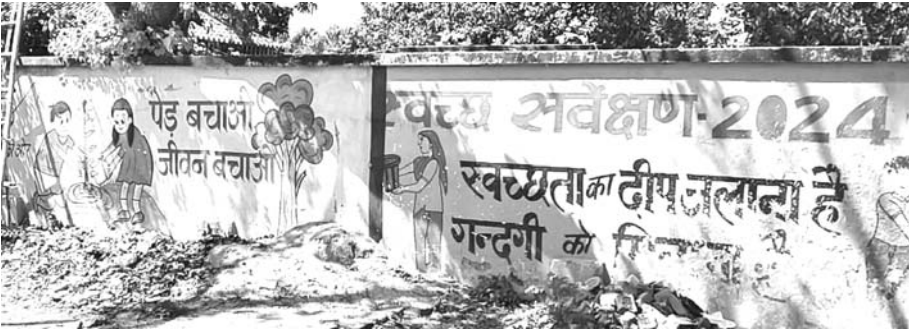 पेड़ बचाओ
जीवन बचाओ
स्वच्छ सर्वेक्षण-2024
स्वच्छता का दीप जलाना है
गन्दगी को है